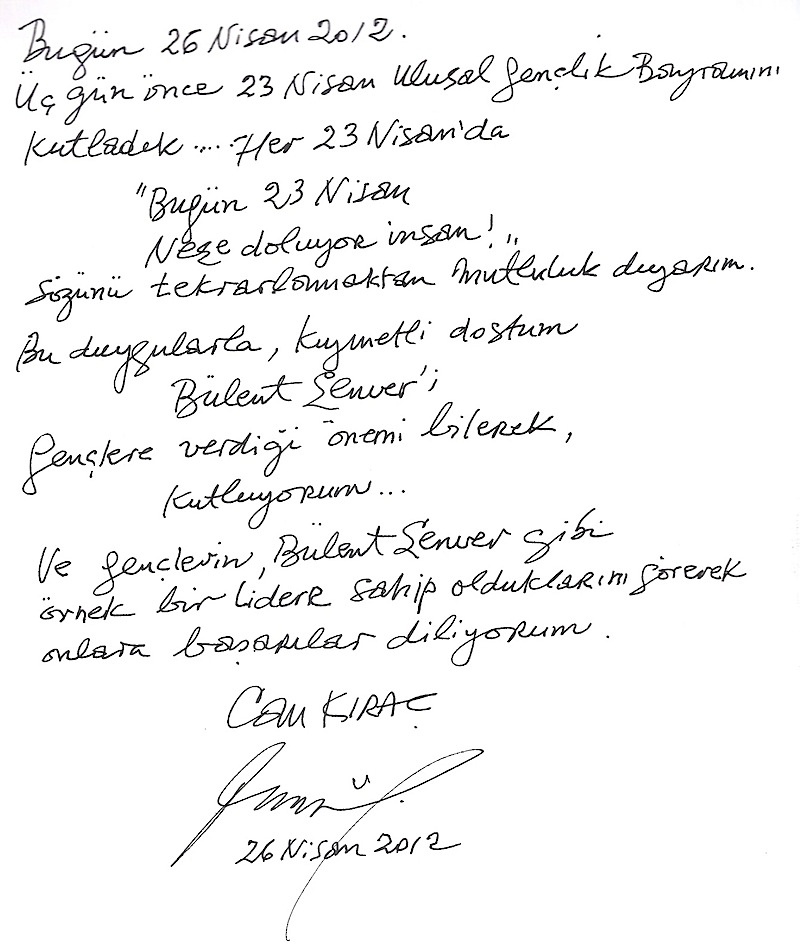 Bugün 26 Nisan 2012.
Üç gün önce 23 Nisan Ulusal Gençlik Bayramını
Kutladık .... Her 23 Nisan'da
"Bugün 23 Nisan
Neşe doluyor insan! "
Sözünü tekrarlamaktan mutluluk duyarım.
Bu duygularla, kıymetli dostum
Bülent Şenver'i
Gençlere verdiği önemi bilerek,
Kutluyorum...
Ve gençlerin, Bülent Şenver gibi
örnek bir lidere sahip olduklarını görerek
onlara başarılar diliyorum.
Can KIRAÇ
26 Nisan 2012